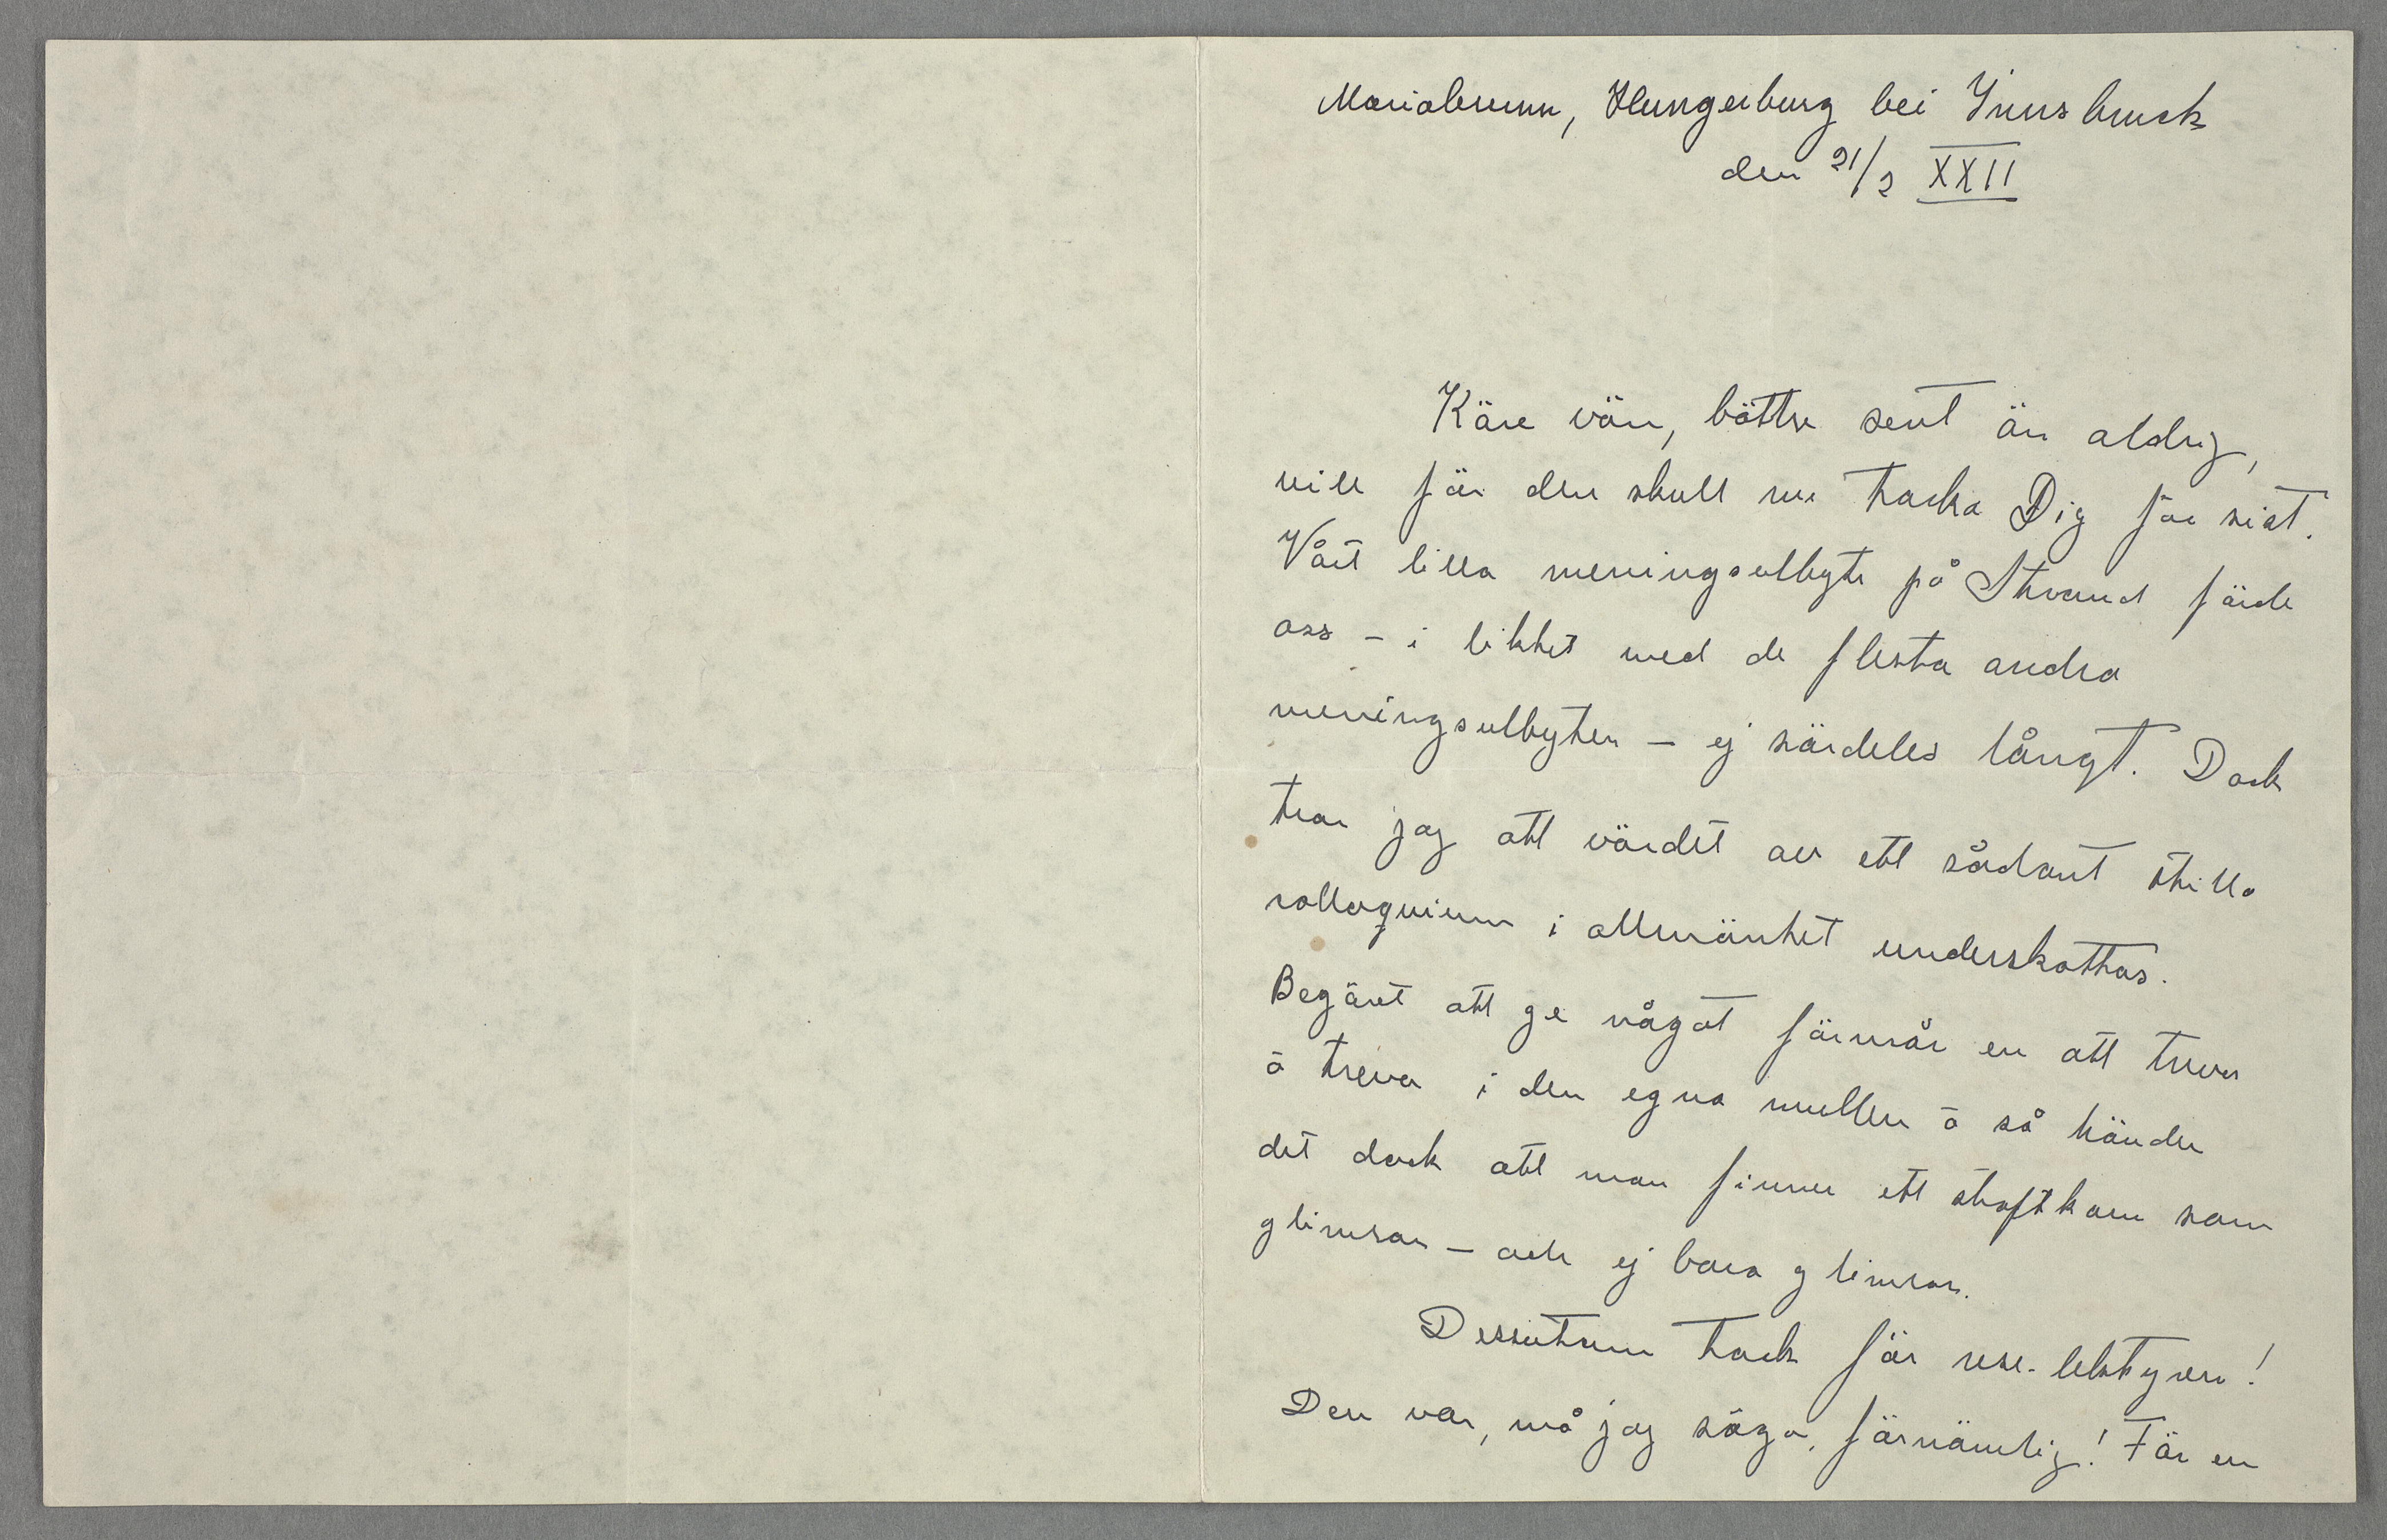 Mariabrunn, Hungerburg bei Innsbruck
den 21/2 XXII
Käre vän, bättre sent än aldrig,
vill för den skull nu tacka Dig för sist.
Vårt lilla meningsutbyte på Strand förde
oss – i likhet med de flesta andra
meningsutbyten – ej särdeles långt. Dock
tror jag att värdet av ett sådant stilla
colloquium i allmänhet underskattas.
Begäret att ge något förmår en att treva
å treva i den egna mullen å så händer
det dock att man finner ett skaftkorn som
glimrar – och ej bara glimrar.
Dessutom tack för rese-lektyren!
Den var, må jag säga, förnämlig! För en